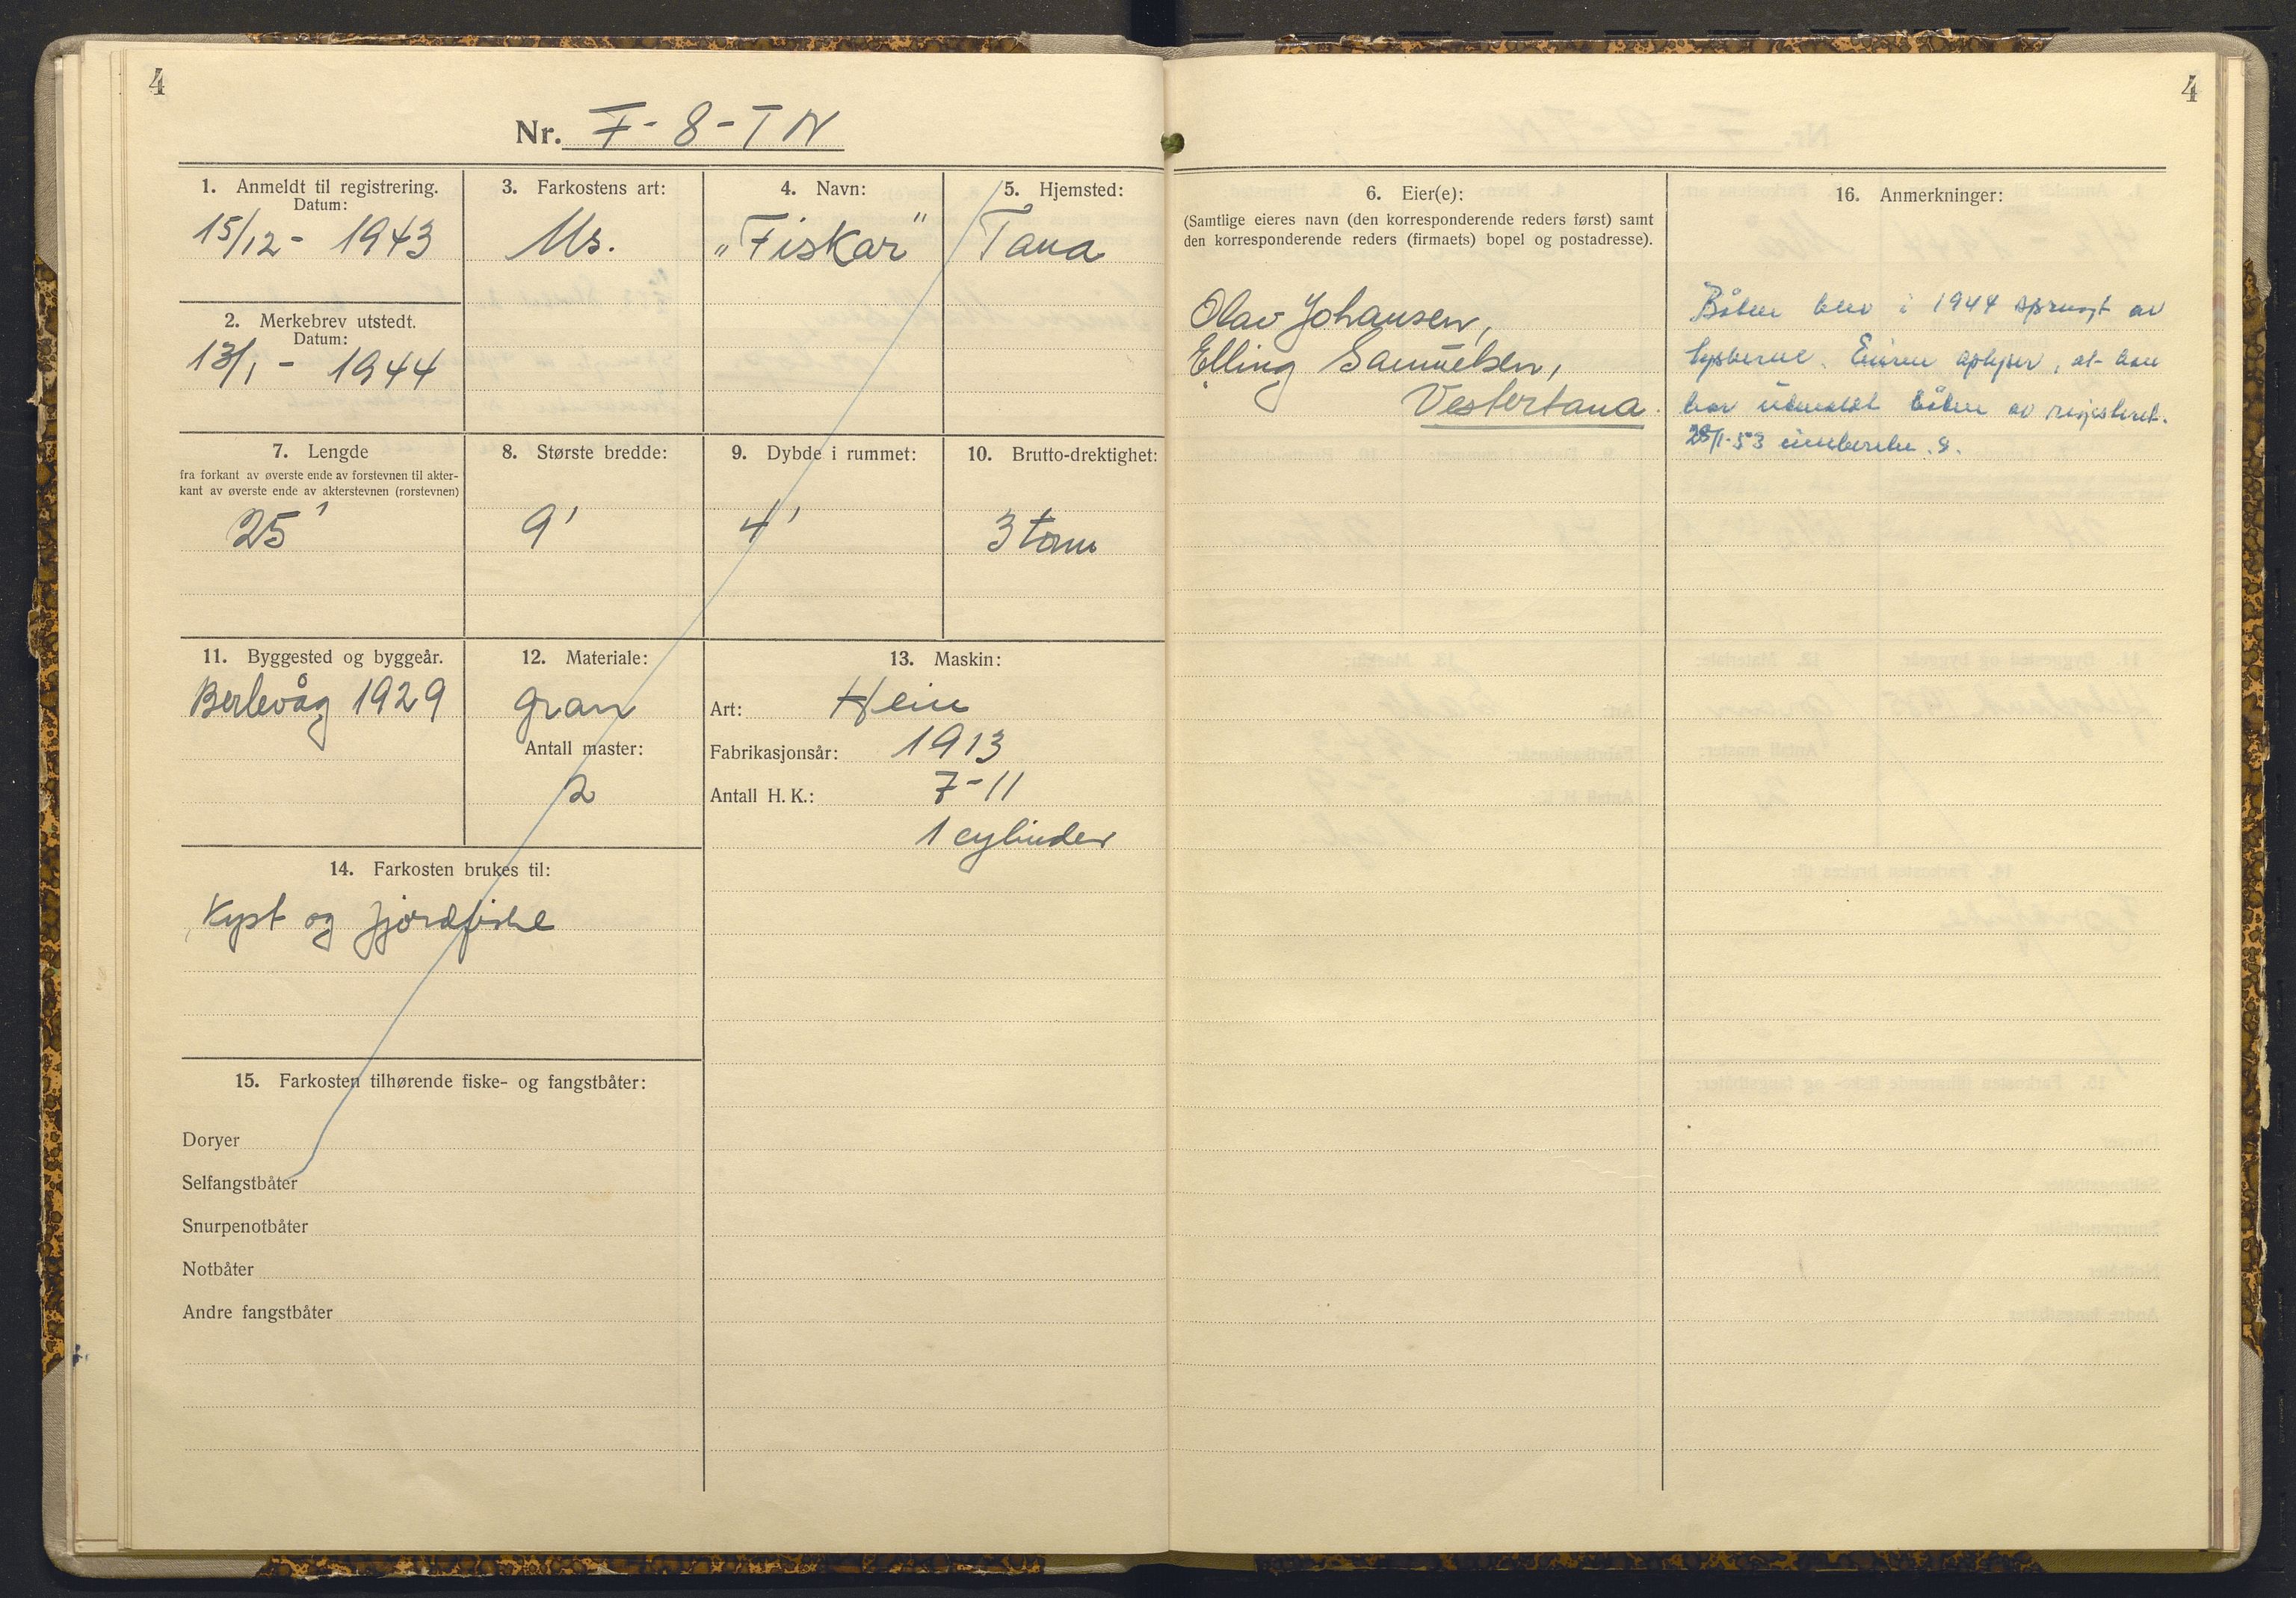 4
4
Nr. F-8-TN
1. Anmeldt til registrering.
Datum:
15/12 - 1943
2. Merkebrev utstedt.
Datum:
13/1 - 1944
3. Farkostens art:
Ms.
4. Navn:
„Fiskar"
5. Hjemsted:
Tana
7. Lengde
fra forkant av øverste ende av forstevnen til akter-
kant av øverste ende av akterstevnen (rorstevnen)
25'
8. Største bredde:
9'
9. Dybde i rummet:
4'
10. Brutto-drektighet:
3 tonn
11. Byggested og byggeår.
Berlevåg 1929
12. Materiale:
gran
Antall master:
2
13. Maskin:
Art: Hein
Fabrikasjonsår: 1913
Antall H. K.: 7-11
1 cylinder
14. Farkosten brukes til:
Kyst og fjordfiske
15. Farkosten tilhørende fiske- og fangstbåter:
Doryer
Selfangstbåter
Snurpenotbåter
Notbåter
Andre fangstbåter
6. Eier(e):
(Samtlige eieres navn (den korresponderende reders først) samt
den korresponderende reders (firmaets) bopel og postadresse).
Olav Johansen,
Elling Samuelsen,
Vestertana.
16. Anmerkninger:
Båten blev i 1944 sprengt av
tyskerne. Eieren oplyser, at han
har utmeldt båten av registeret.
28/1-53